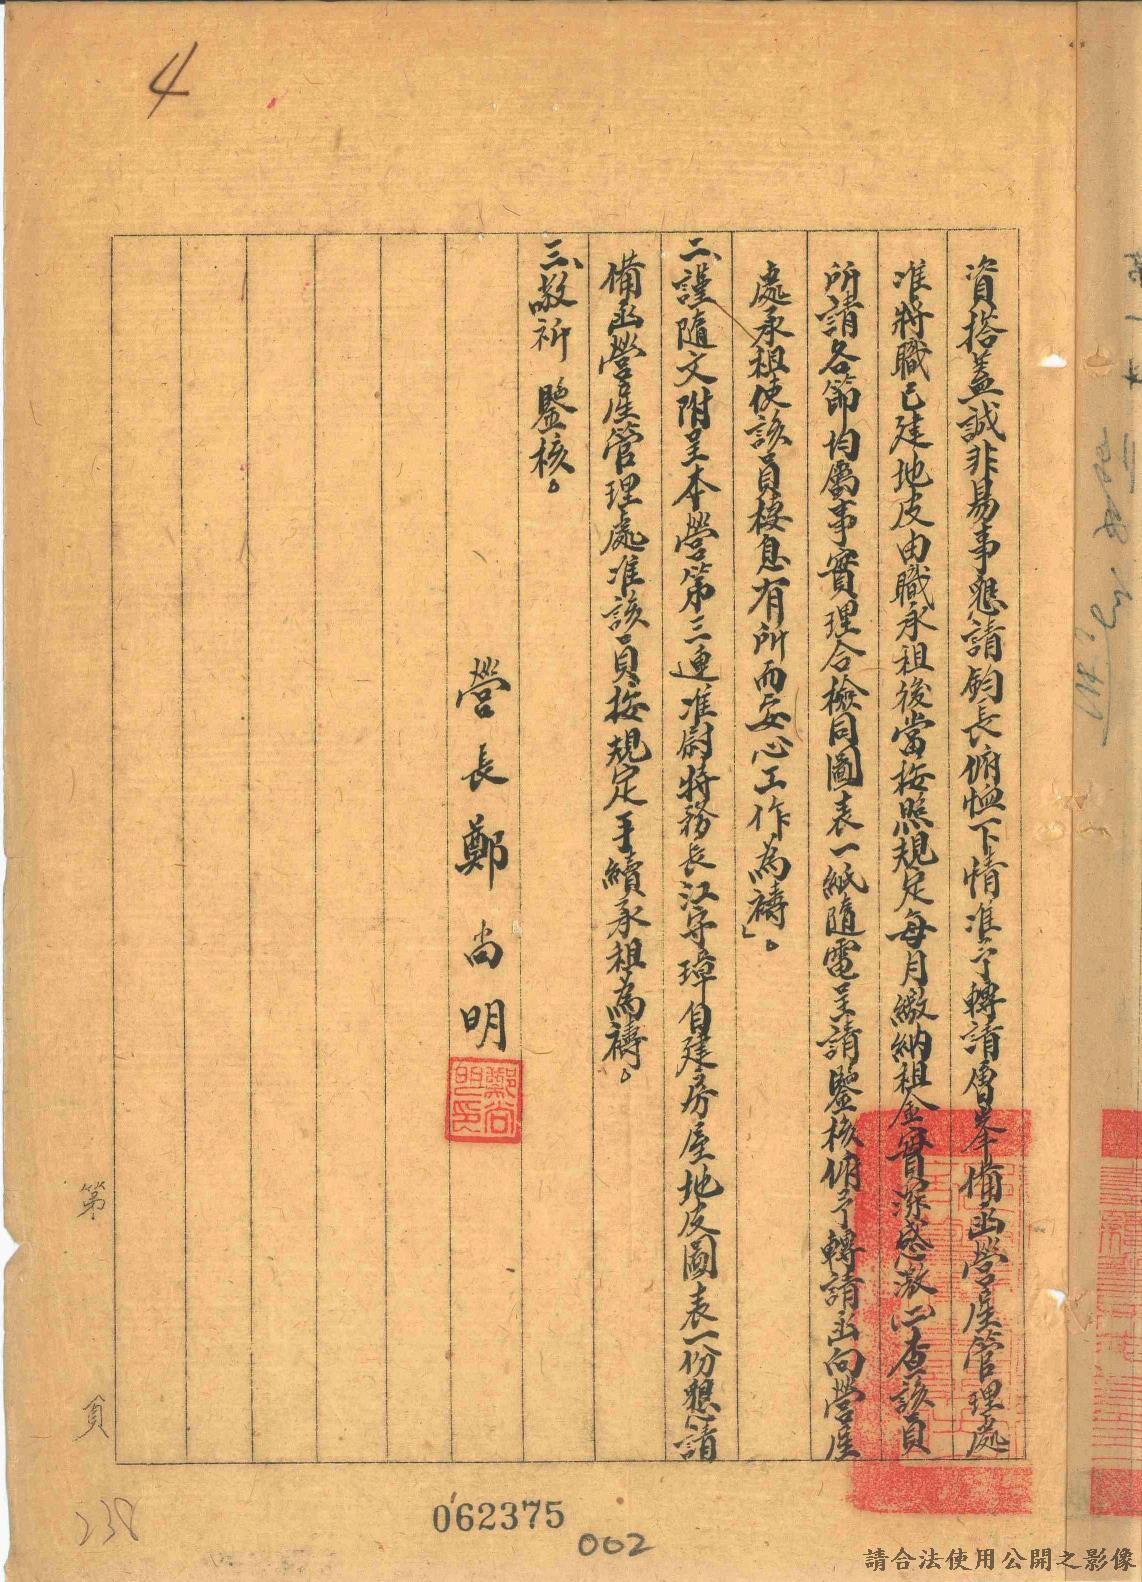 4
資搭蓋誠非易事懇請鈞長俯恤下情准予轉請層峯備函營產管理處
准將職已建地皮由職承租後當按照規定每月繳納租金實深感激㈡查該員
所請各節均屬事實理合檢同圖表一紙隨電呈請鑒核俯予轉請函向營產
處承租使該員棲息有所而安心工作為禱」。
二、謹隨文附呈本營第三連准尉特務長江守璋自建房屋地皮圖表一份懇請
備函營產管理處准該員按規定手續承租為禱。
三、敬祈 鑒核。
營長鄭尚明
鄭尚明印
第 頁
238
062375
002
請合法使用公開之影像